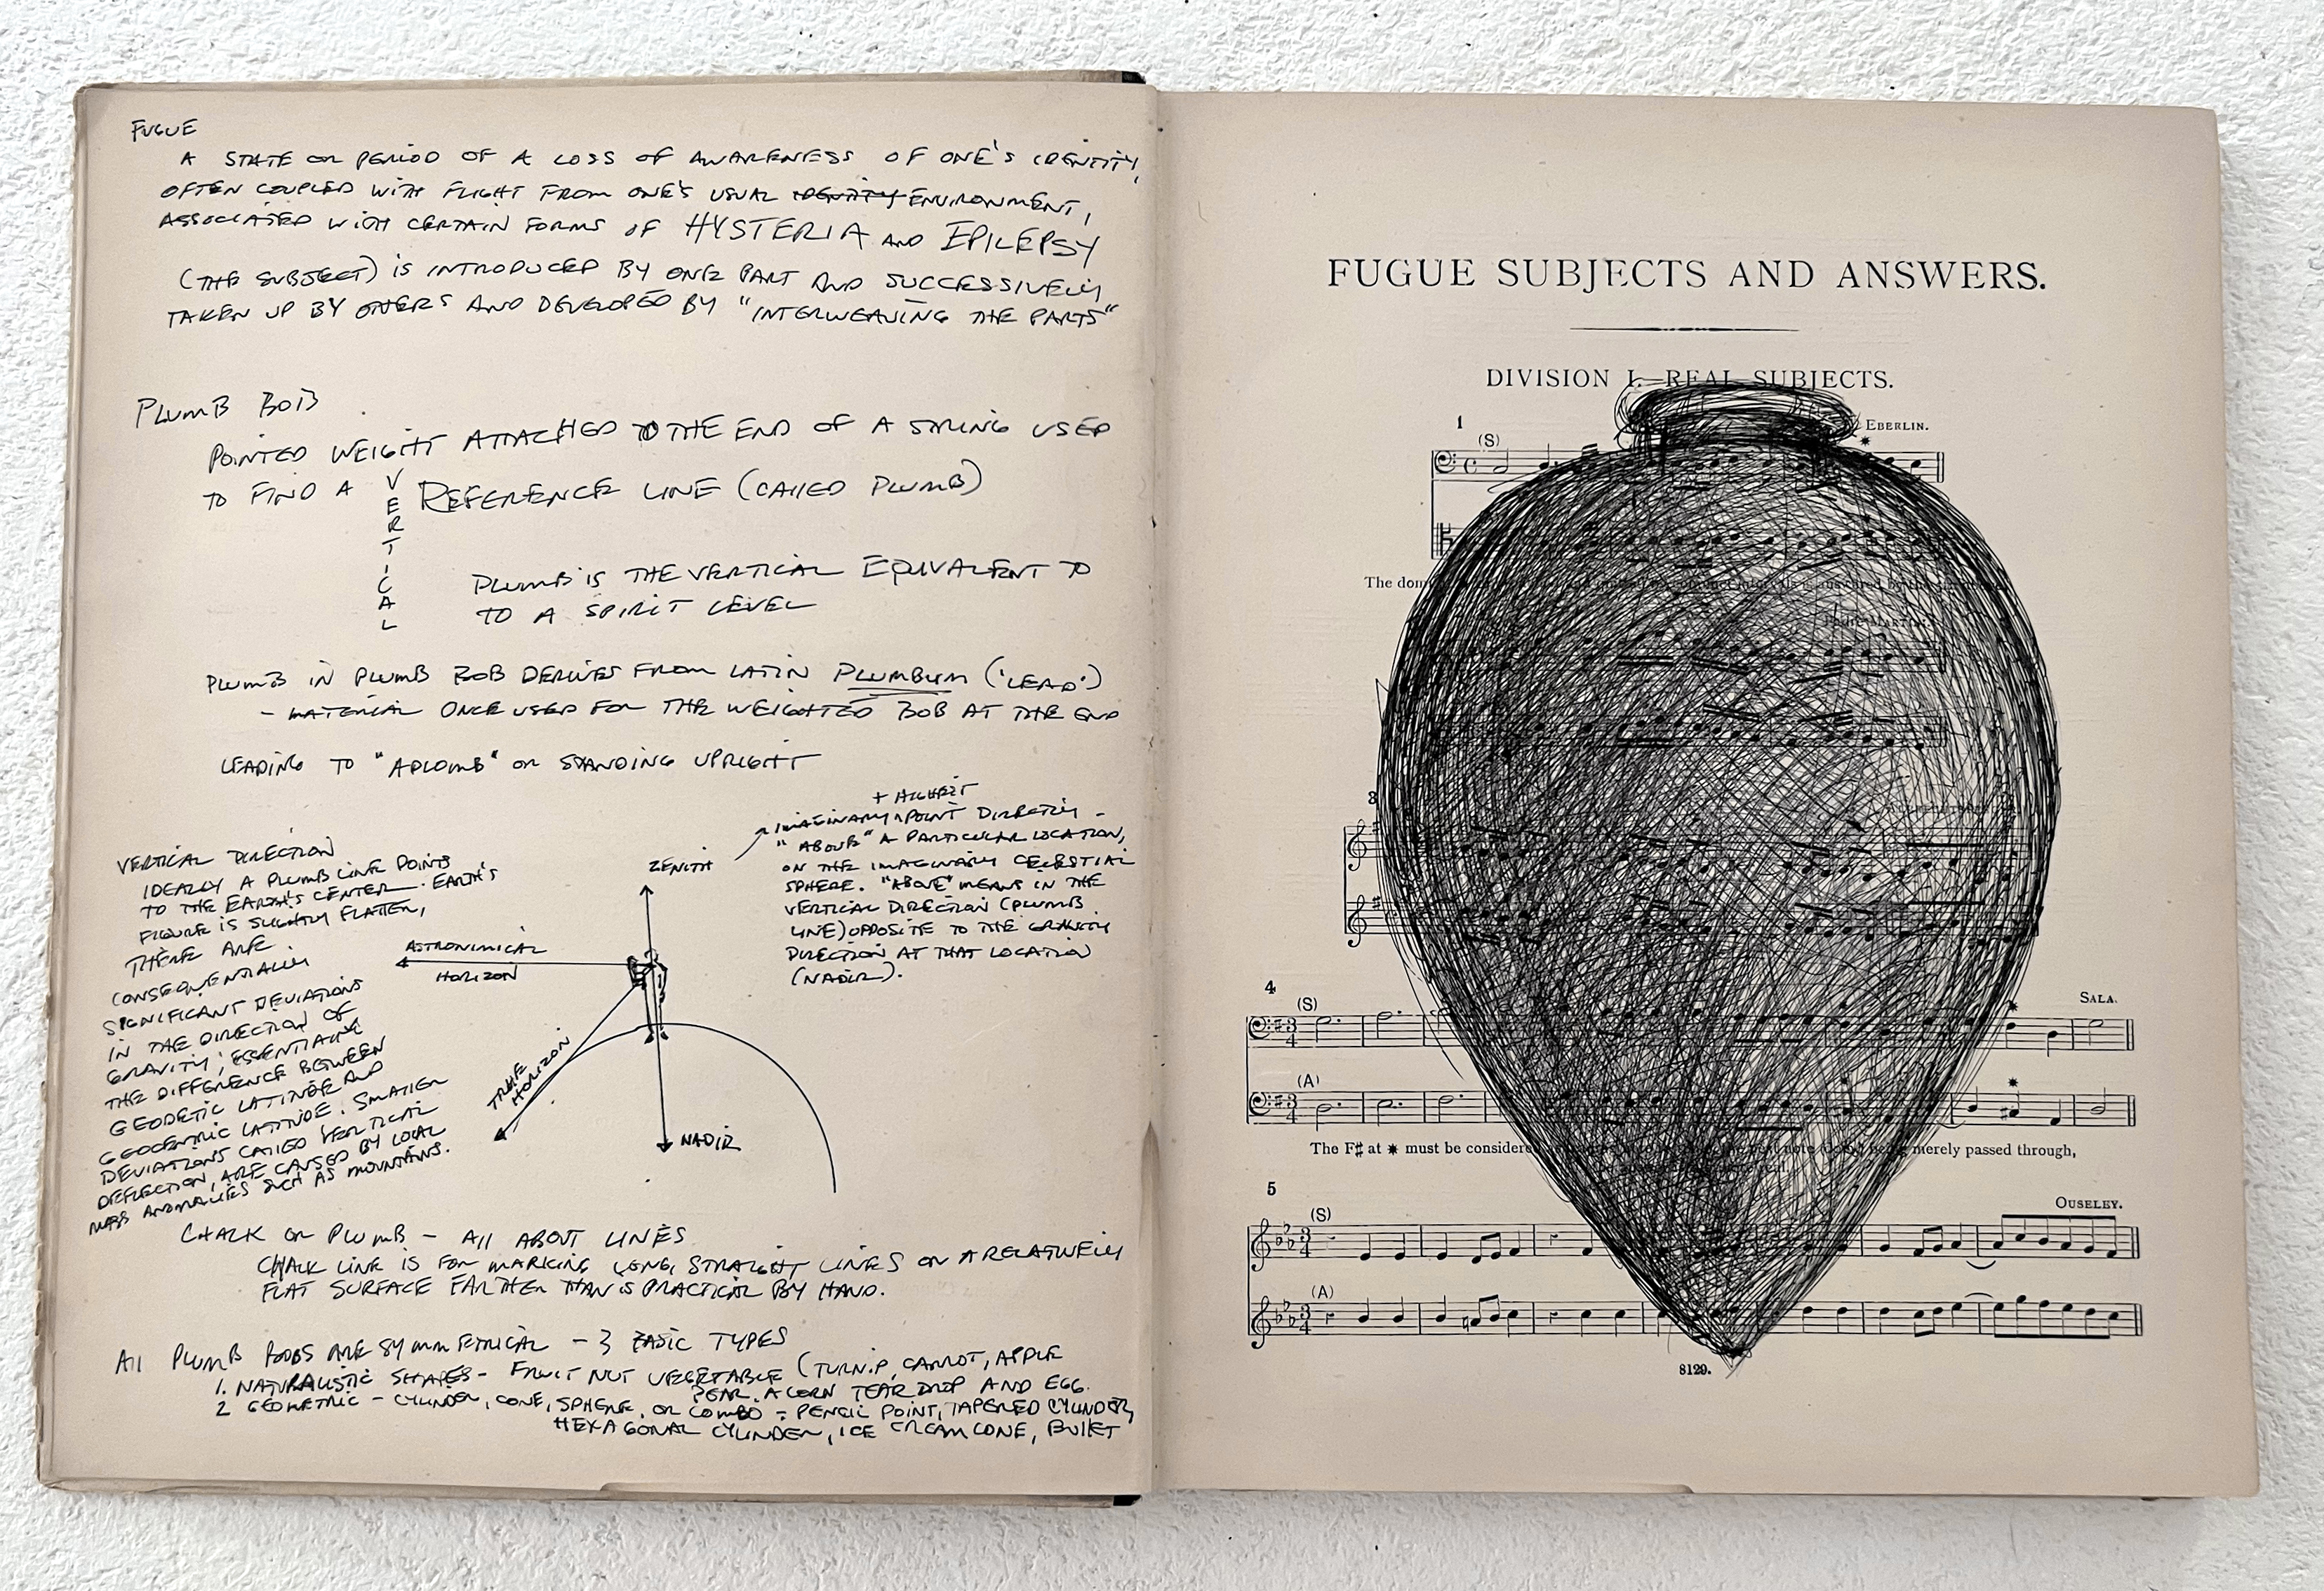 FUGUE
A STATE OR PERIOD OF A LOSS OF AWARENESS OF ONE'S IDENTITY,
OFTEN COUPLED WITH FLIGHT FROM ONE'S USUAL IDENTITY ENVIRONMENT,
ASSOCIATED WITH CERTAIN FORMS OF HYSTERIA AND EPILEPSY
(THE SUBJECT) IS INTRODUCED BY ONE PART AND SUCCESSIVELY
TAKEN UP BY OTHERS AND DEVELOPED BY "INTERWEAVING THE PARTS"
PLUMB BOB
POINTED WEIGHT ATTACHED TO THE END OF A STRING USED
TO FIND A VERTICAL REFERENCE LINE (CALLED PLUMB)
PLUMB IS THE VERTICAL EQUIVALENT TO
TO A SPIRIT LEVEL
PLUMB IN PLUMB BOB DERIVES FROM LATIN PLUMBUM ('LEAD')
- MATERIAL ONCE USED FOR THE WEIGHTED BOB AT THE END
LEADING TO "APLOMB" OR STANDING UPRIGHT
VERTICAL DIRECTION
IDEALLY A PLUMB LINE POINTS
TO THE EARTH'S CENTER. EARTH'S
FIGURE IS SLIGHTLY FLATTEN,
THERE ARE
CONSEQUENTIALLY
SIGNIFICANT DEVIATIONS
IN THE DIRECTION OF
GRAVITY; ESSENTIALLY
THE DIFFERENCE BETWEEN
GEODETIC LATITUDE AND
GEOCENTRIC LATITUDE. SMALLER
DEVIATIONS CALLED VERTICAL
DEFLECTION, ARE CAUSED BY LOCAL
MASS ANOMALIES SUCH AS MOUNTAINS.
ZENITH
ASTRONIMICAL
HORIZON
TRUE
HORIZON
NADIR
+ HIGHEST
IMAGINARY POINT DIRECTLY -
"ABOVE" A PARTICULAR LOCATION,
ON THE IMAGINARY CELESTIAL
SPHERE. "ABOVE" MEANS IN THE
VERTICAL DIRECTION (PLUMB
LINE) OPPOSITE TO THE GRAVITY
DIRECTION AT THAT LOCATION
(NADIR).
CHALK OR PLUMB - All ABOUT LINES
CHALK LINE IS FOR MARKING LONG, STRAIGHT LINES ON A RELATIVELY
FLAT SURFACE FARTHER THAN IS PRACTICAL BY HAND.
All PLUMB BOBS ARE SYMMETRICAL - 3 BASIC TYPES
1. NATURALISTIC SHAPES - FRUIT NUT VEGETABLE (TURNIP, CARROT, APPLE
PEAR, ACORN TEAR DROP AND EGG.
2 GEOMETRIC - CYLINDER, CONE, SPHERE, OR COMBO - PENCIL POINT, TAPERED CYLINDER,
HEXAGONAL CYLINDER, ICE CREAM CONE, BULLET
FUGUE SUBJECTS AND ANSWERS.
DIVISION I.—REAL SUBJECTS.
1
(S)
EBERLIN.
The
MARTINI.
3
4
(S)
SALA.
(A)
The F♯ at * must be considered merely passed through,
5
(S)
OUSELEY.
(A)
8129.